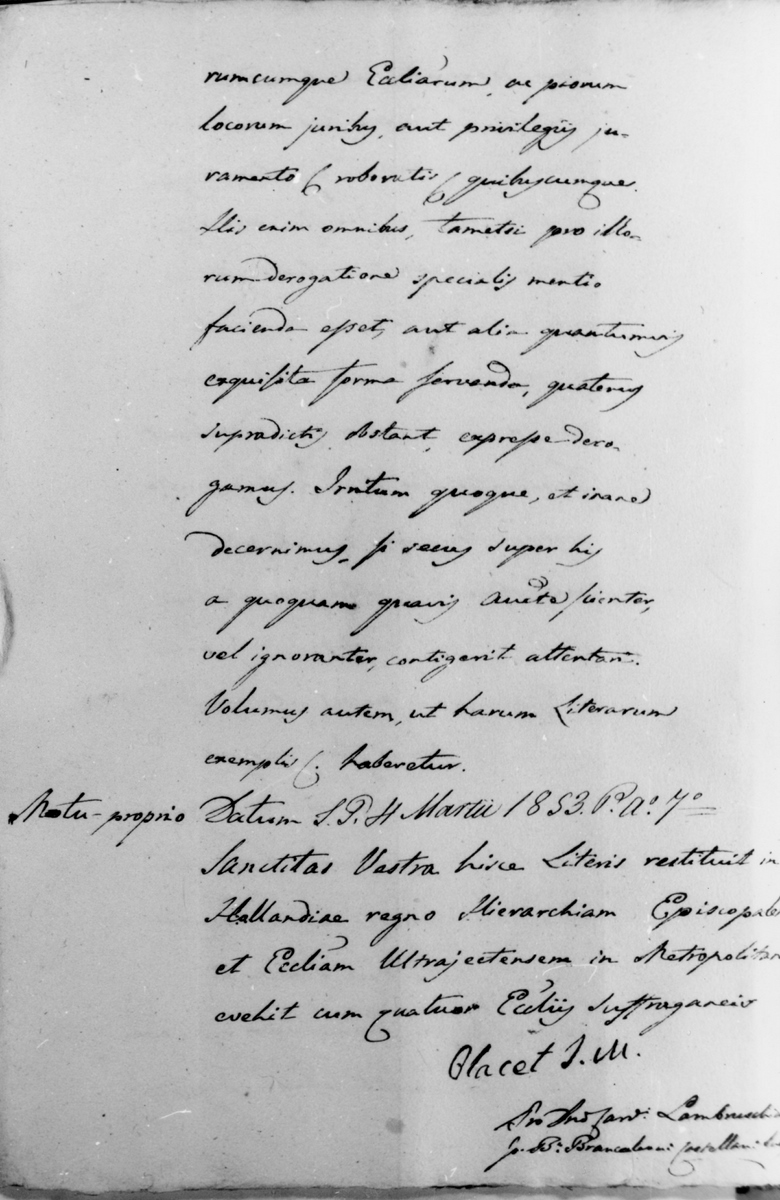 rumcumque Eccliarum, ac piorum
locorum juribus, aut privilegiis ju-
ramento &c. roboratis &c. quibuscumque.
His enim omnibus, tametsi pro illo-
rum derogatione specialis mentio
facienda esset, aut alia quantumvis
exquisita forma servanda, quatenus
supradictis obstant, expresse dero-
gamus. Irritum quoque, et inane
decernimus, si secus super his
a quoquam quavis Aucte scienter,
vel ignoranter, contigerit attentari.
Volumus autem, ut harum Literarum
exemplis &c. haberetur.
Motu-proprio Datum S. P. 4 Martii 1853. P. A.º 7.º
Sanctitas Vestra hisce Literis restituit in
Hollandiae regno Hierarchiam Episcopalem
et Eccliam Ultrajectensem in Metropolitan
evehit cum quatuor Ecclis Suffraganeis
Placet J. M.
Pro Dno Card. Lambruschi
Jo. B. Brancaleoni Castellani